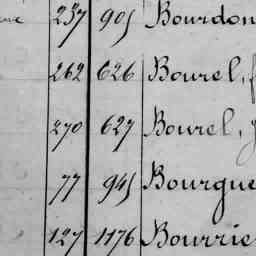 237 905 Bourdon
262 626 Bourel,
270 627 Bourel,
77 945 Bourgue
127 1176 Bourrie